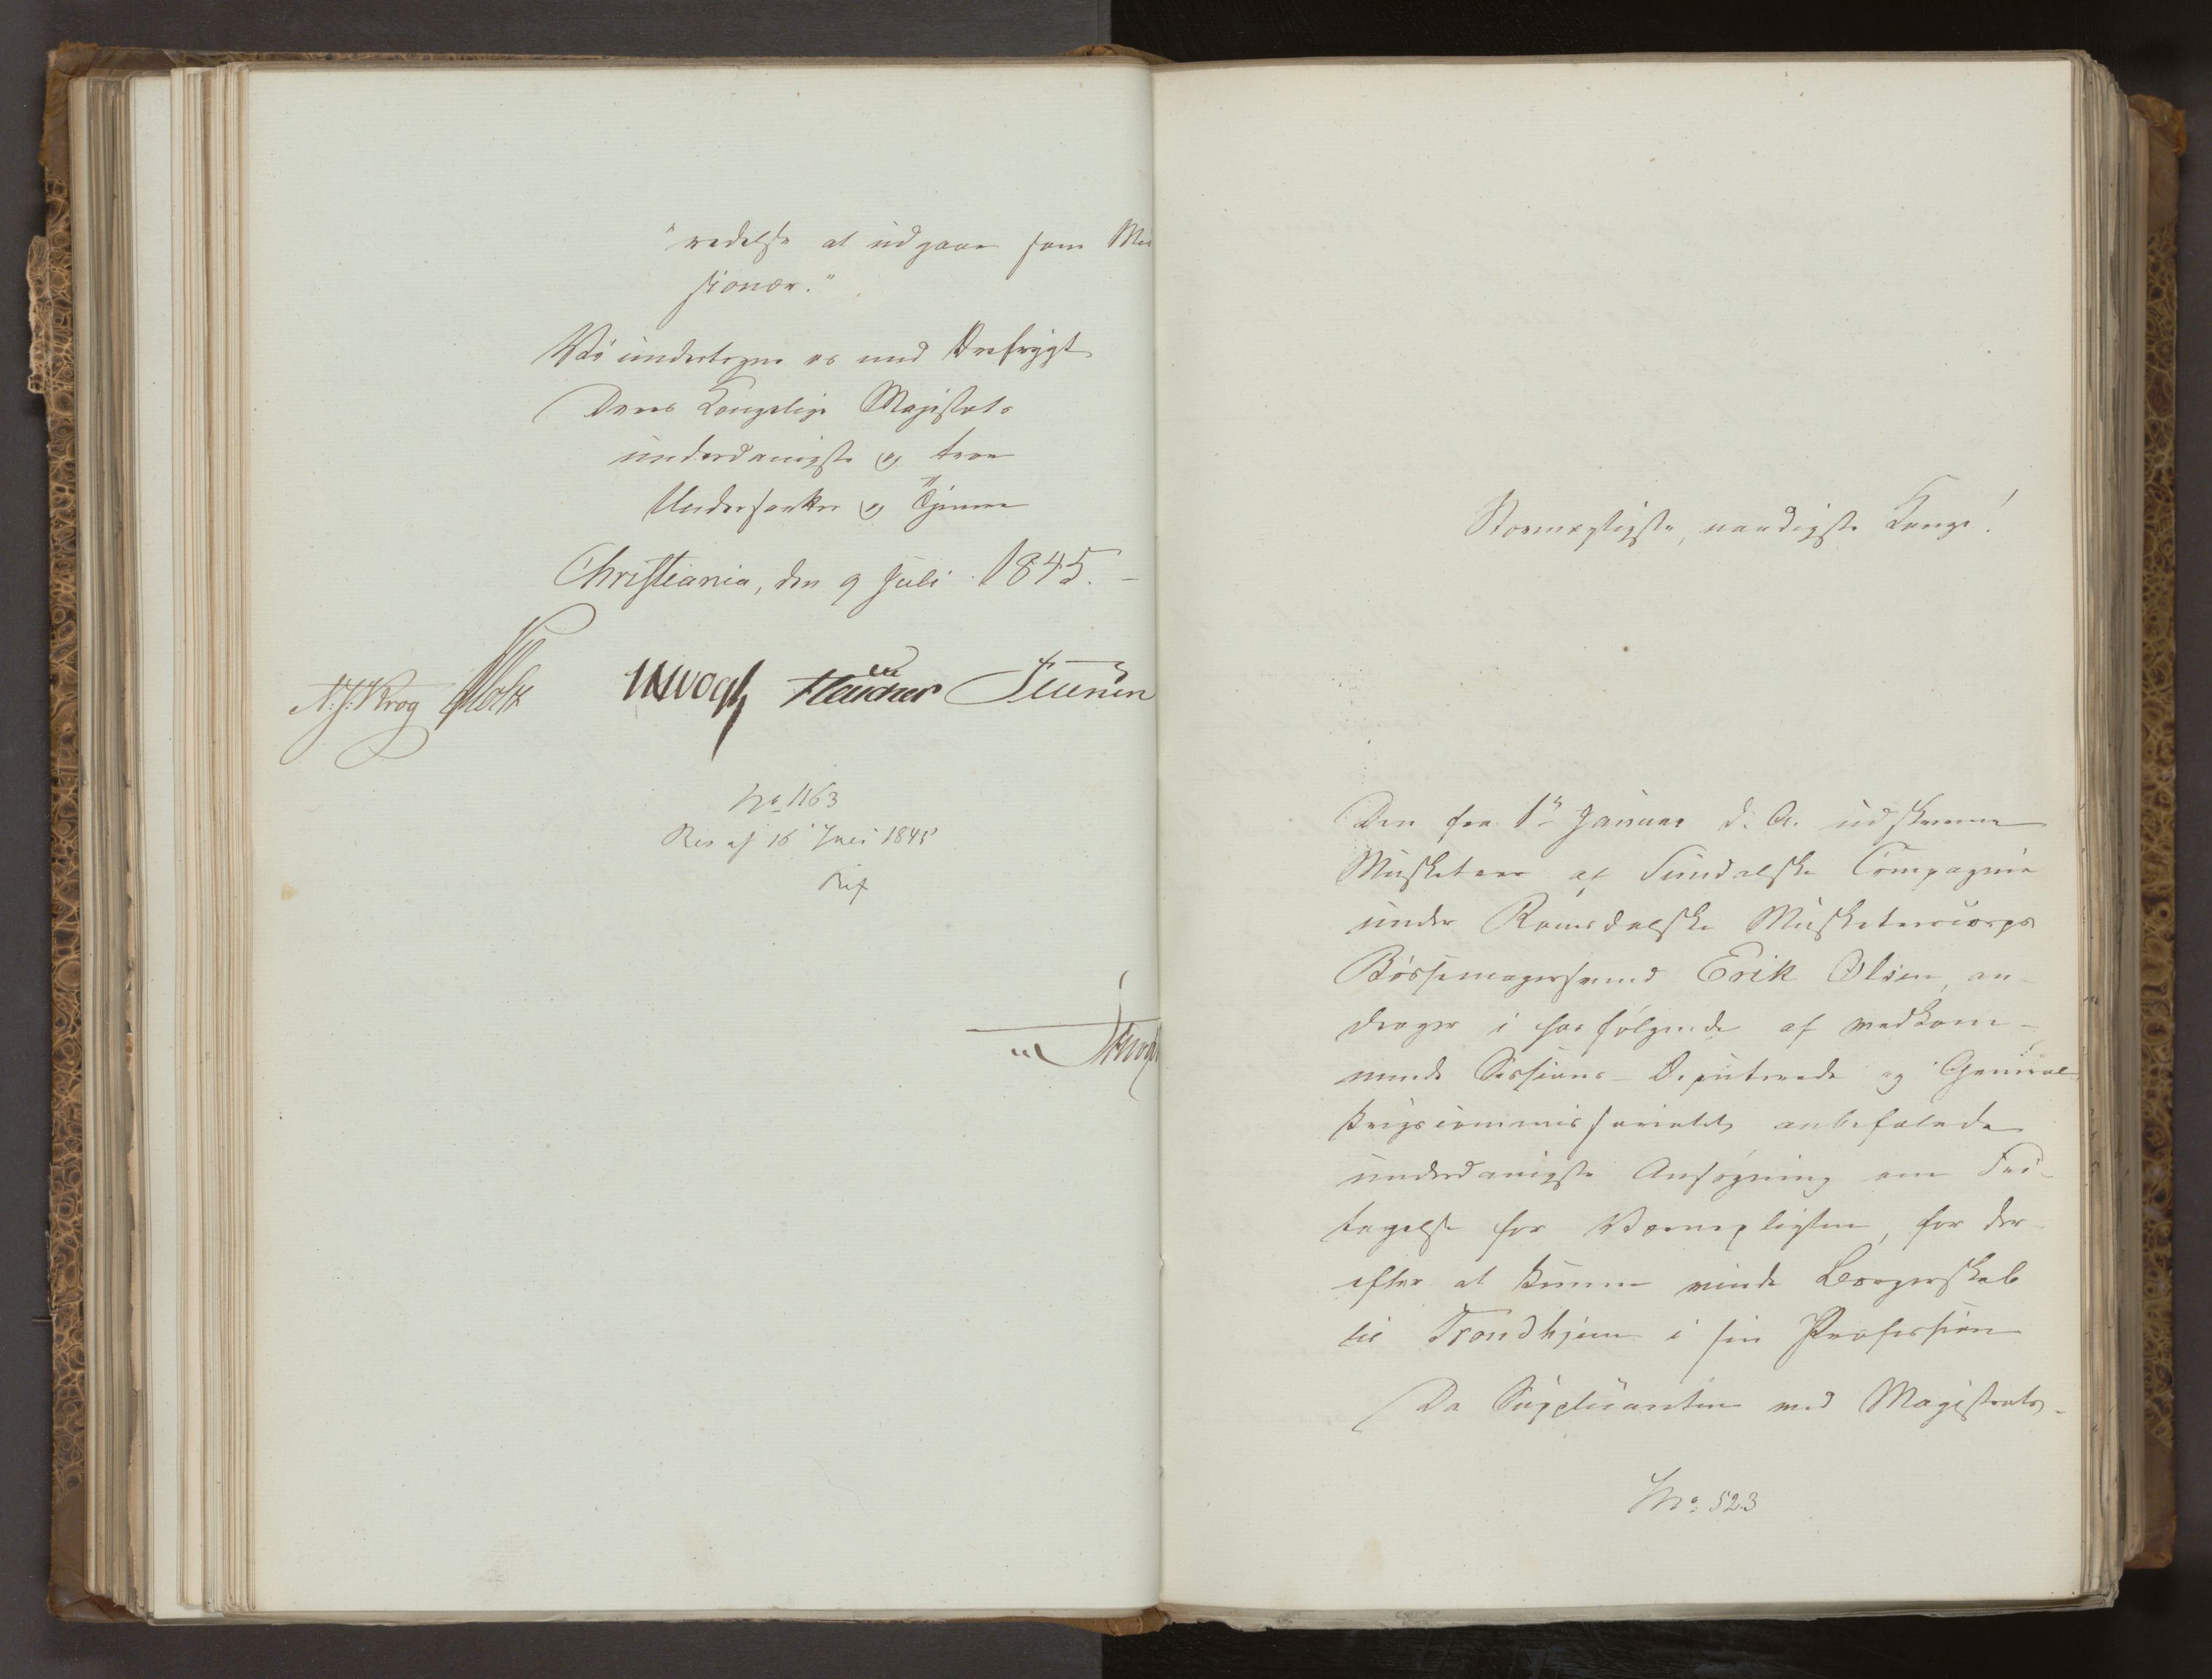 "redelse at udgaae som Mis
sionær."
Vi undertegne os med Ærefrygt
Deres Kongelige Majestæts
underdanigste og troe
Undersaatter og Tjenere
Christiania, den 9 Juli 1845. -
N. J. Krog Holst JHVogt Fleischer Sibbern
No 1163
Res af 16 Juli 1845
Stormægtigste, naadigste Konge!
Den fra 1ste Januar d. A. udskrevne
Musketeer af Sundalske Compagnie
under Romsdalske Musketeercorps
Bössemagersvend Erik Olsen, an-
drager i hosfölgende af vedkom-
mende Sessions-Deputerede og General
krigscommissariatet anbefalede
underdanigste Ansögning om Fri-
tagelse for Værnepligten, for der-
efter at kunne vinde Borgerskab
til Trondhjem i sin Profession
Da Supplicanten med Magistrats-
No 523